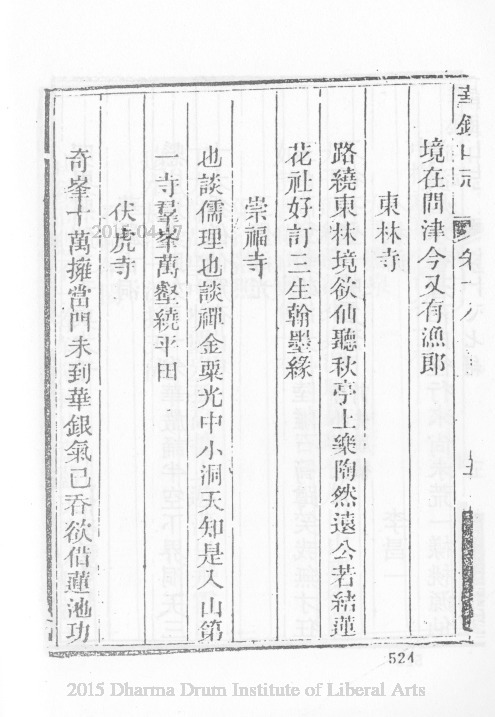 華銀山志 卷十八
境在問津今又有漁郎
東林寺
路繞東林境欲仙聽秋亭上樂陶然遠公若結蓮
花社好訂三生翰墨緣
崇福寺
也談儒理也談禪金粟光中小洞天知是入山第
一寺羣峯萬壑繞平田
伏虎寺
奇峯十萬擁當門未到華銀氣已吞欲借蓮池功
524
2015 Dharma Drum Institute of Liberal Arts